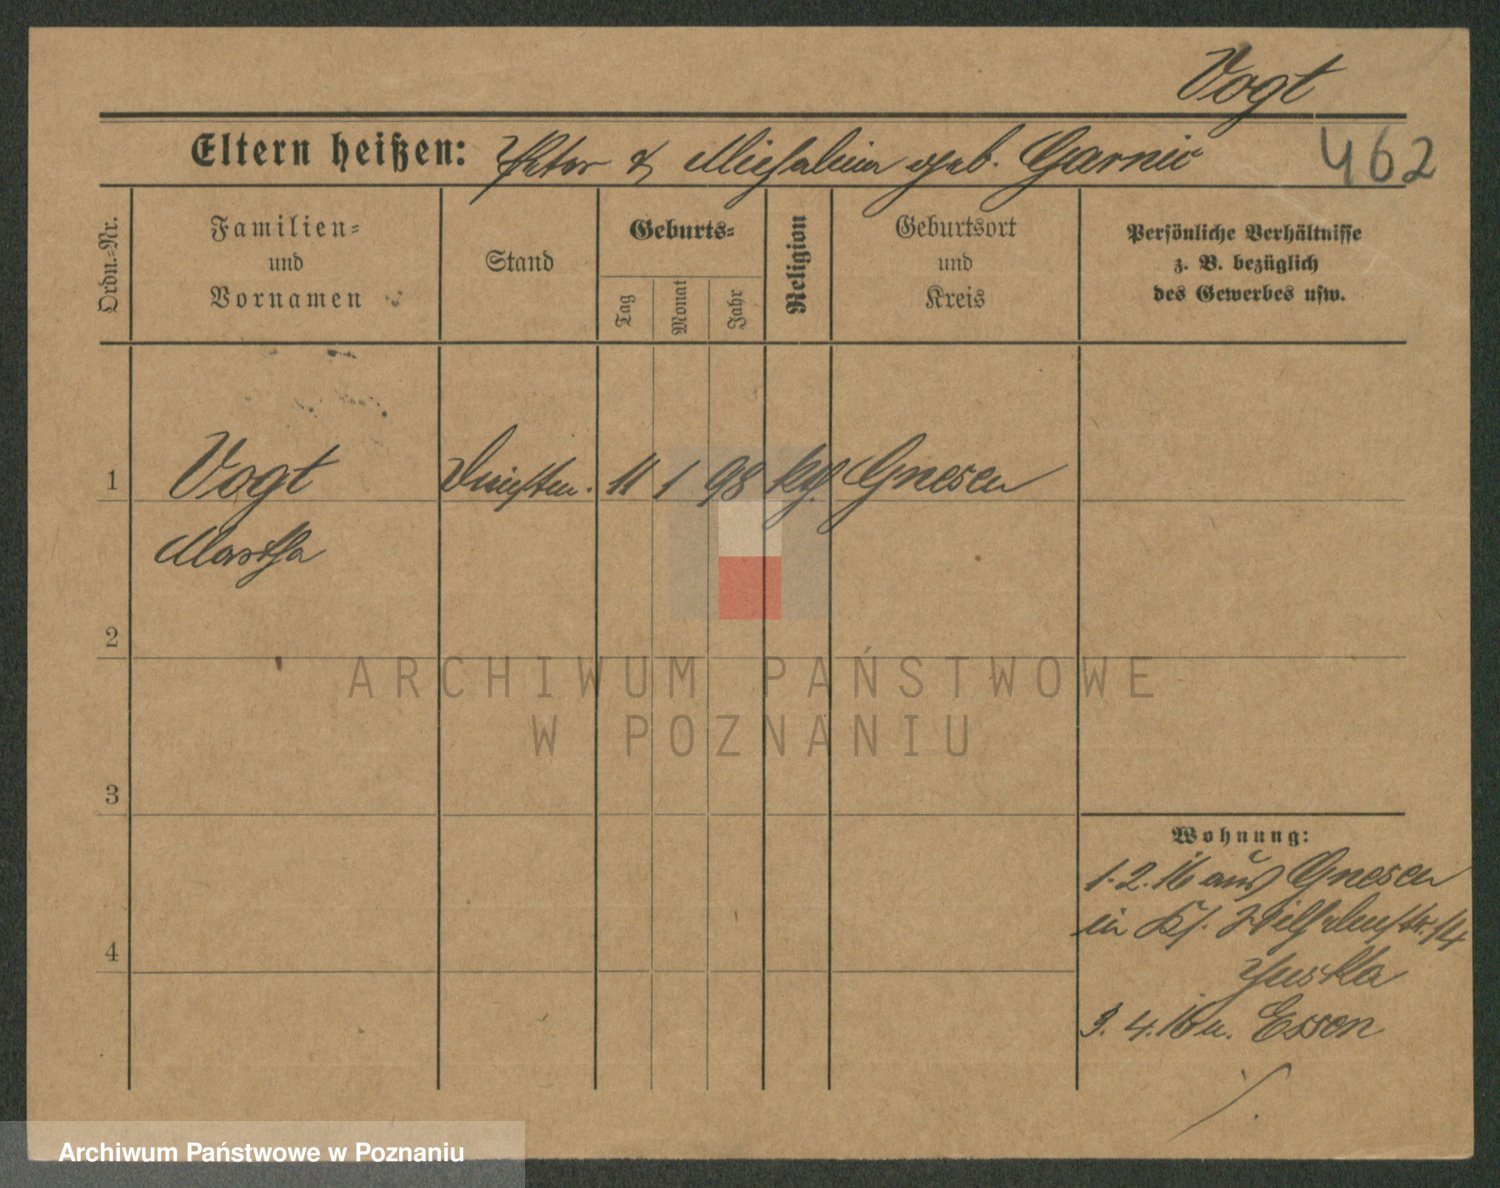 Vogt
Eltern heißen: Peter & Michalina geb. Garnic
462
Ordn.-Nr.
Familien-
und
Vornamen
Stand
Geburts-
Tag
Monat
Jahr
Religion
Geburtsort
und
Kreis
Persönliche Verhältnisse
z. B. bezüglich
des Gewerbes usw.
1
Vogt
11 1 98 kg. Gnesen
Martha
2
3
4
ARCHIWUM PAŃSTWOWE
W POZNANIU
Wohnung:
1.2.16 aus Gnesen
in Wilhelmstr. 14
3. 4. 16 n. Essen
Archiwum Państwowe w Poznaniu